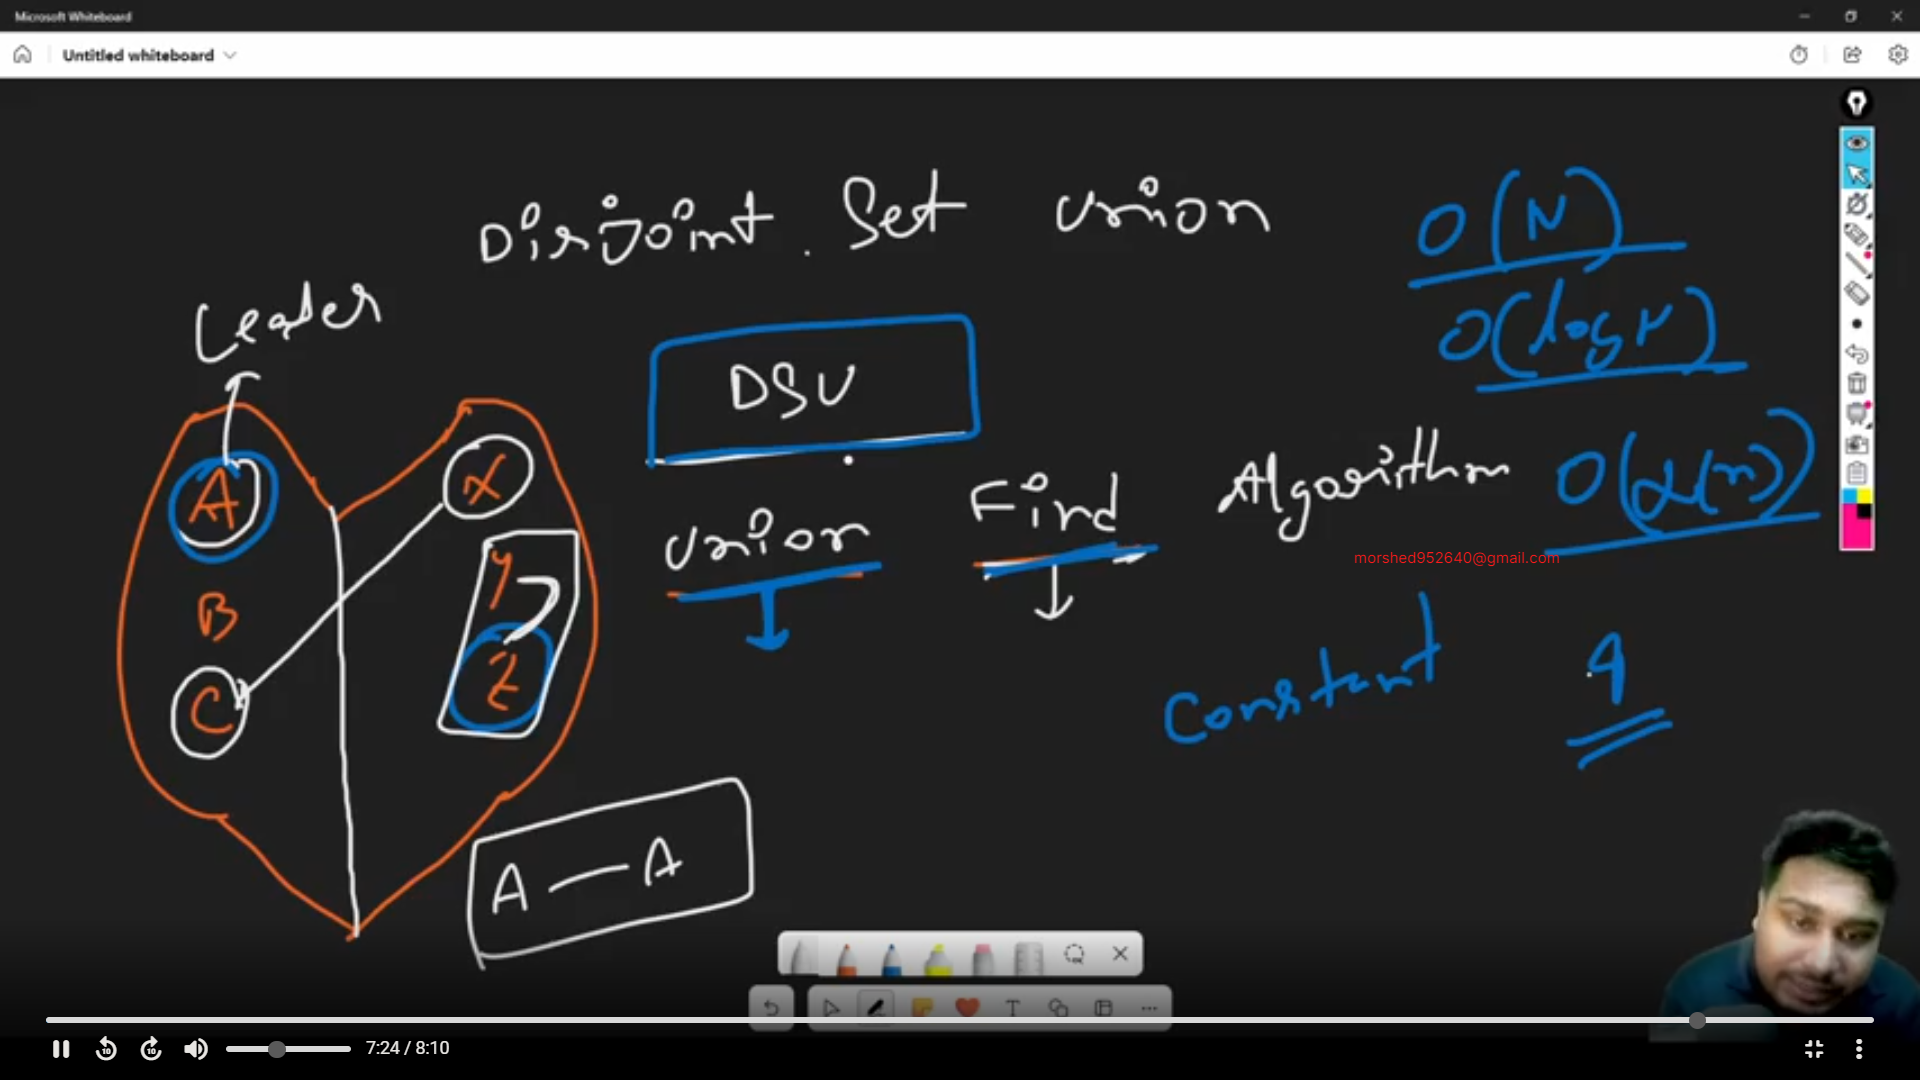 Microsoft Whiteboard
Untitled whiteboard
Disjoint. Set Union
O(N)
O(log N)
Leader
DSU
A
B
C
X
y
Z
Union Find Algorithm O(α(n))
morshed952640@gmail.com
Constant 4
A — A
T
10 10 7:24 / 8:10